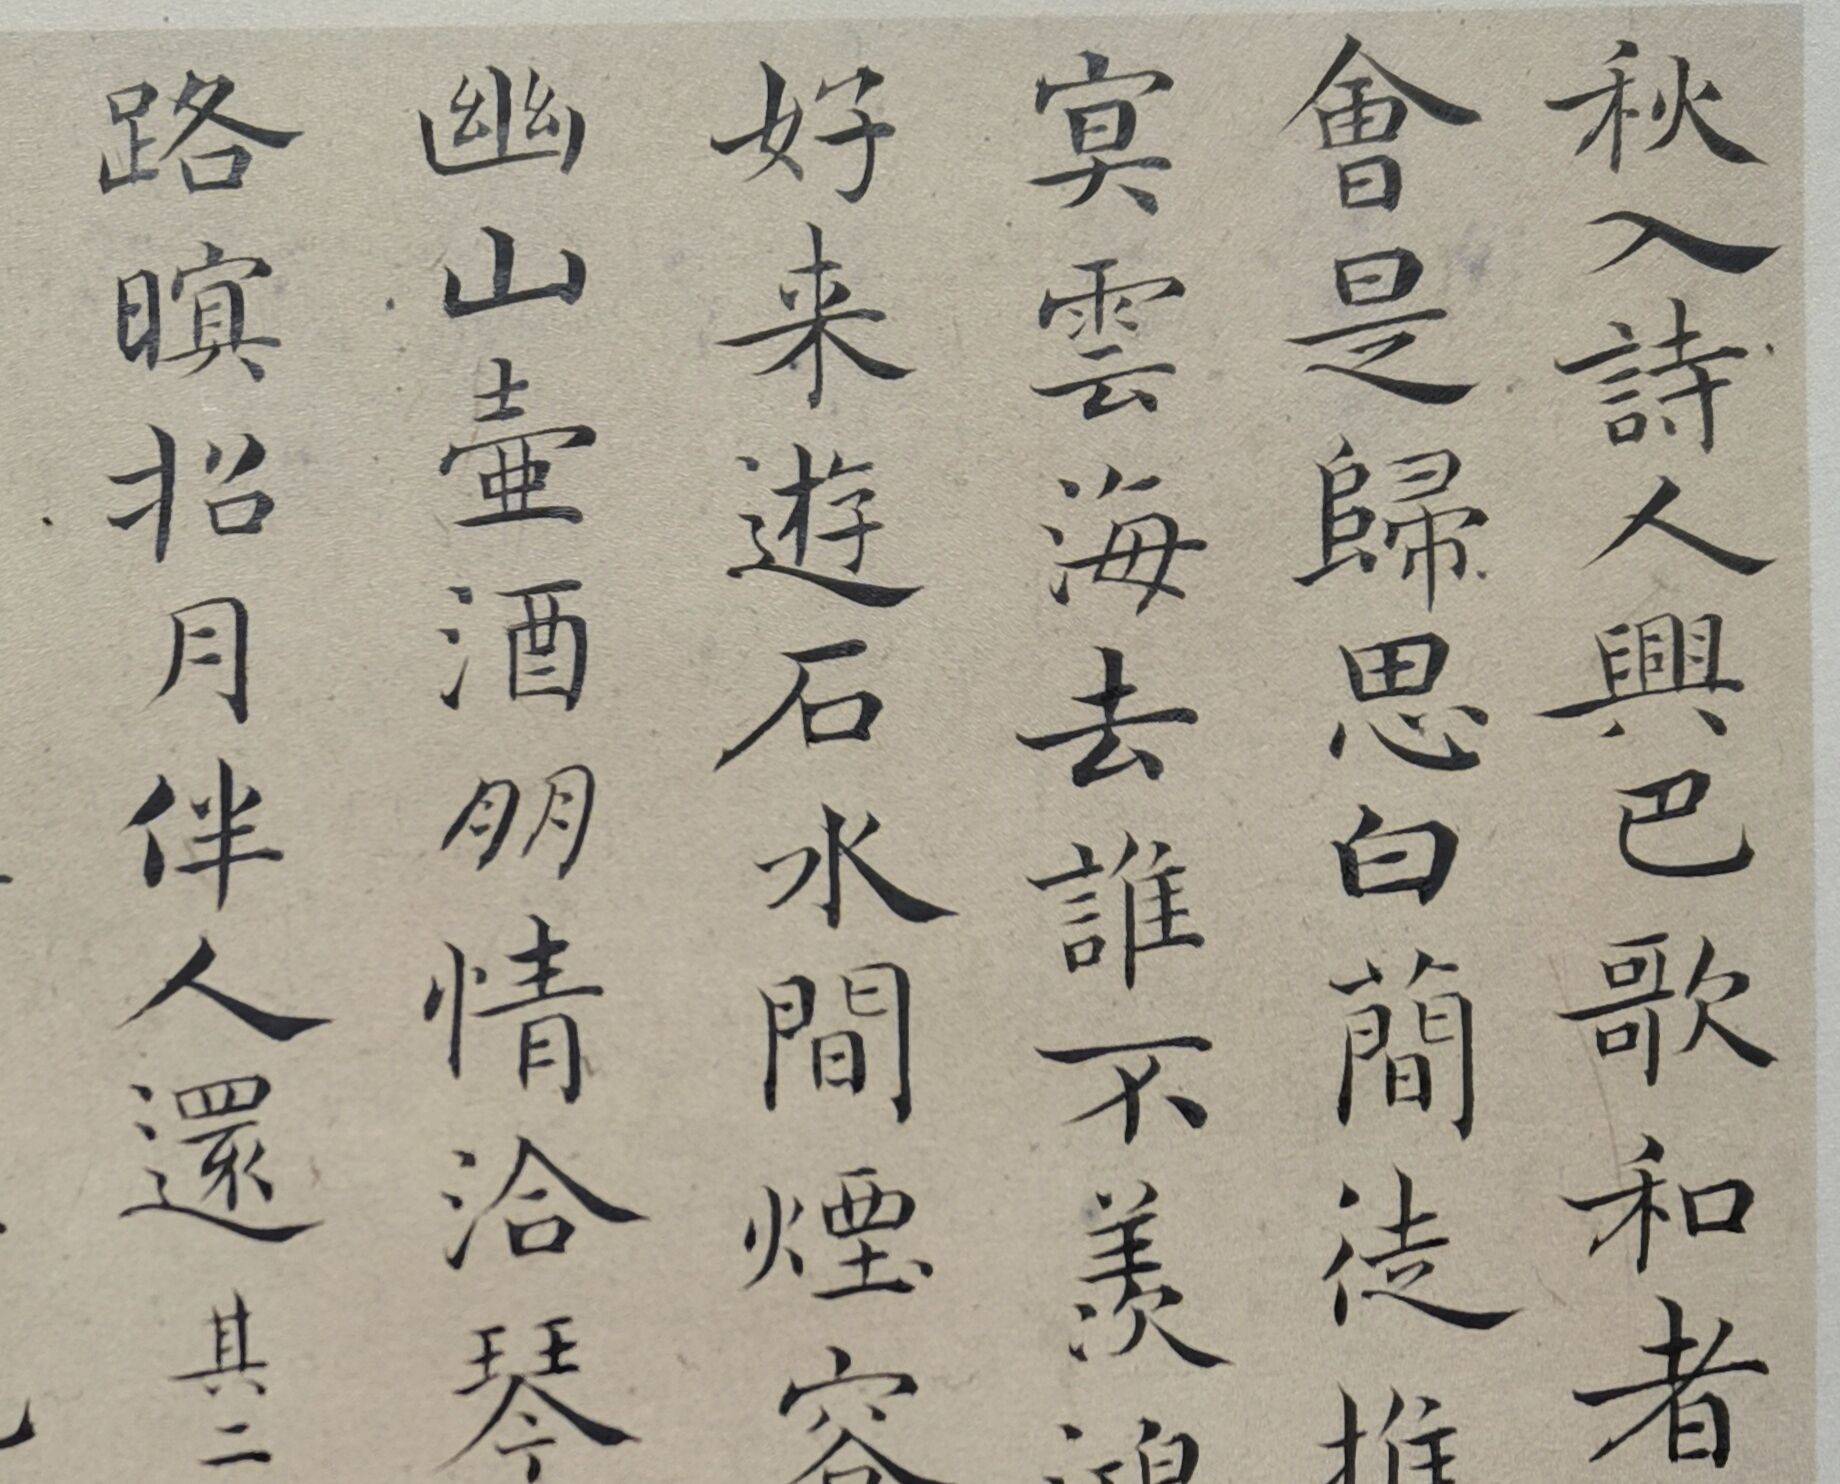 秋入詩人興巴歌和者
會是歸思白蕳徒推
寞雲海去誰不羨鴻
好来遊石水間煙容
幽山壷酒朙情洽琴
路暝招月伴人還 其二